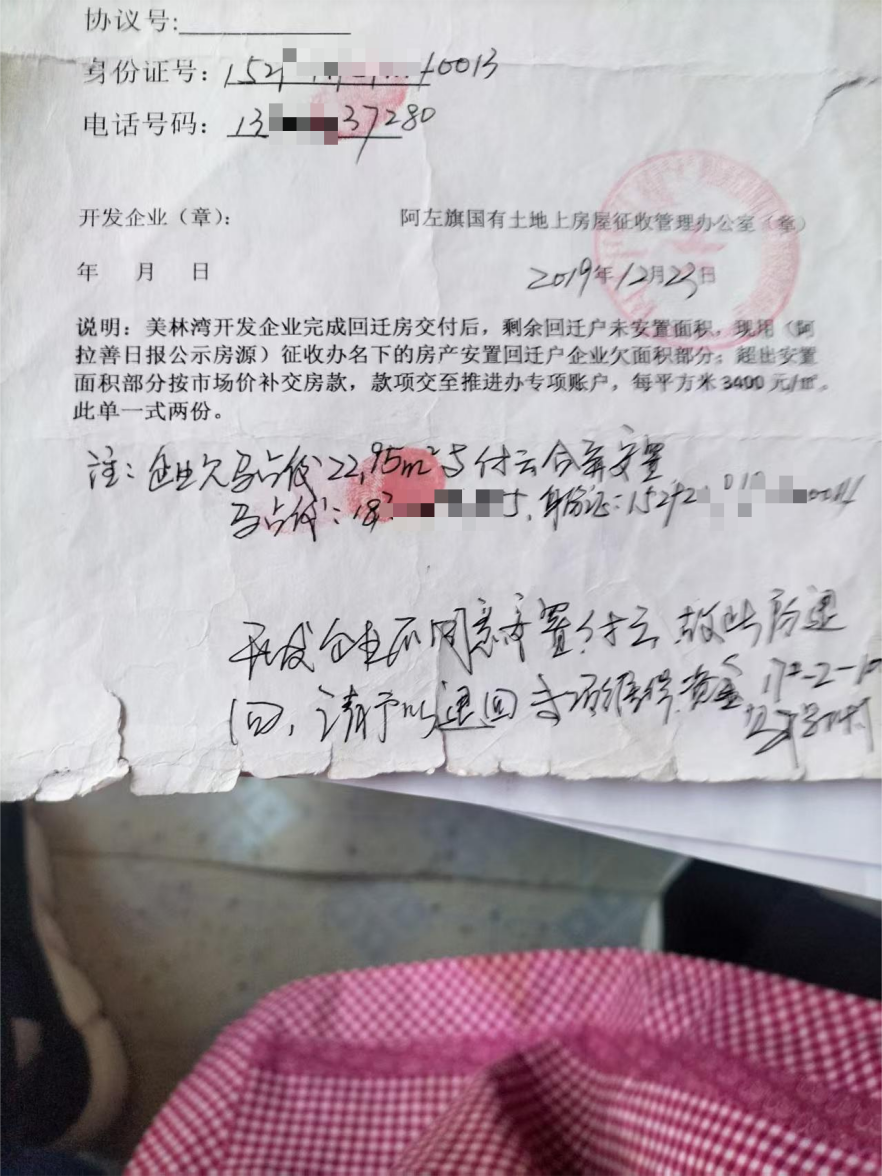 协议号:
身份证号：152 40013
电话号码：13 37280
开发企业（章）：
阿左旗国有土地上房屋征收管理办公室（章）
年 月 日
2019年12月23日
说明：美林湾开发企业完成回迁房交付后，剩余回迁户未安置面积，现用（阿
拉善日报公示房源）征收办名下的房产安置回迁户企业欠面积部分；超出安置
面积部分按市场价补交房款，款项交至推进办专项账户，每平方米3400元/㎡。
此单一式两份。
注：企业欠马占伐22.95m²与付云合并安置
马占伐：18 5，身份证：152
企业不同意安置付云，故此房退
回，请予以退回专项维修资金